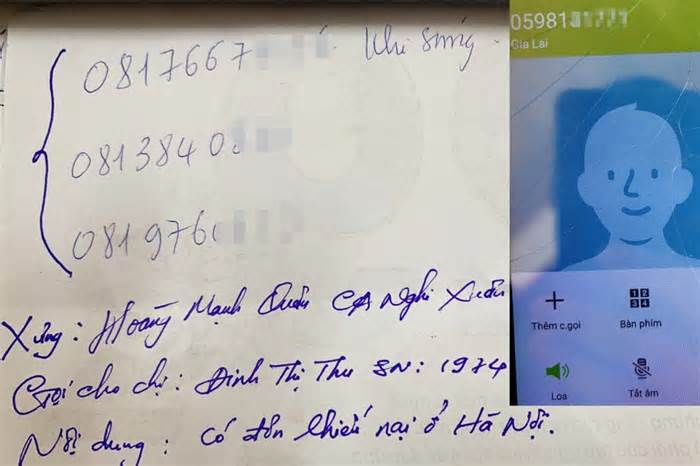 0817667
081384 0
081976
Xưng: Hoàng Mạnh Quân CA Nghi Xuân
Gọi cho chị: Đinh Thị Thu SN: 1974
Nội dung: Có đơn khiếu nại ở Hà Nội.
05981
Gia Lai
Thêm c.gọi
Bàn phím
Loa
Tắt âm